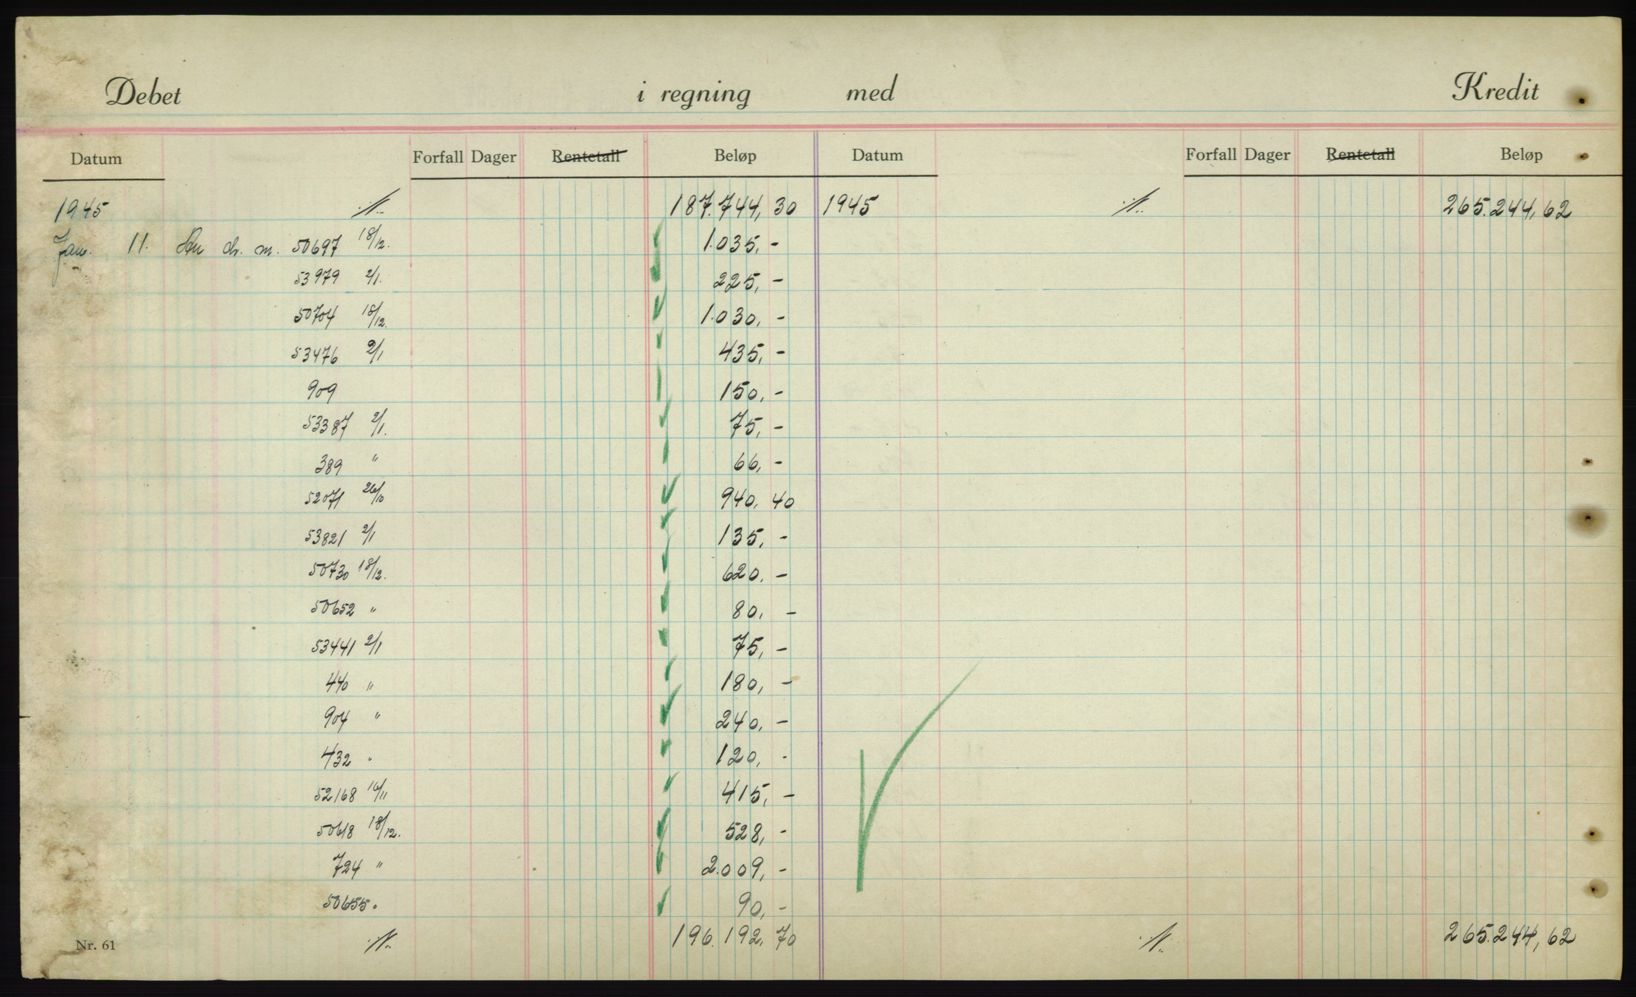 Debet i regning med Kredit
Datum Forfall Dager Rentetall Beløp Datum Forfall Dager Rentetall Beløp
1945 187.744,30 1945 265.244,62
Jan. 11. An ch. m. 50697 18/12. 1.035,-
53979 2/1. 225,-
50704 18/12. 1.030,-
53476 2/1 435,-
909 150,-
53387 2/1. 75,-
389 " 66,-
52071 26/10 940,40
53821 2/1 135,-
50730 18/12. 620,-
50652 " 80,-
53441 2/1 75,-
440 " 180,-
904 " 240,-
432 " 120,-
52168 16/11 415,-
50618 18/12. 528,-
724 " 2.009,-
50655 " 90,-
Nr. 61 196.192,70 265.244,62